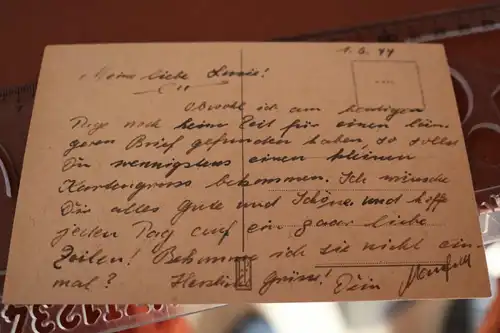 1.6.44
Meine liebe Susie!
Obwohl ich am heutigen
Tage noch keine Zeit für einen län-
geren Brief gefunden habe, so sollst
Du wenigstens einen kleinen
Kartengruss bekommen. Ich wünsche
Dir alles Gute und Schöne und hoffe
jeden Tag auf ein paar liebe
Zeilen! Bekomme ich sie nicht ein-
mal? Herzliche Grüsse! Dein